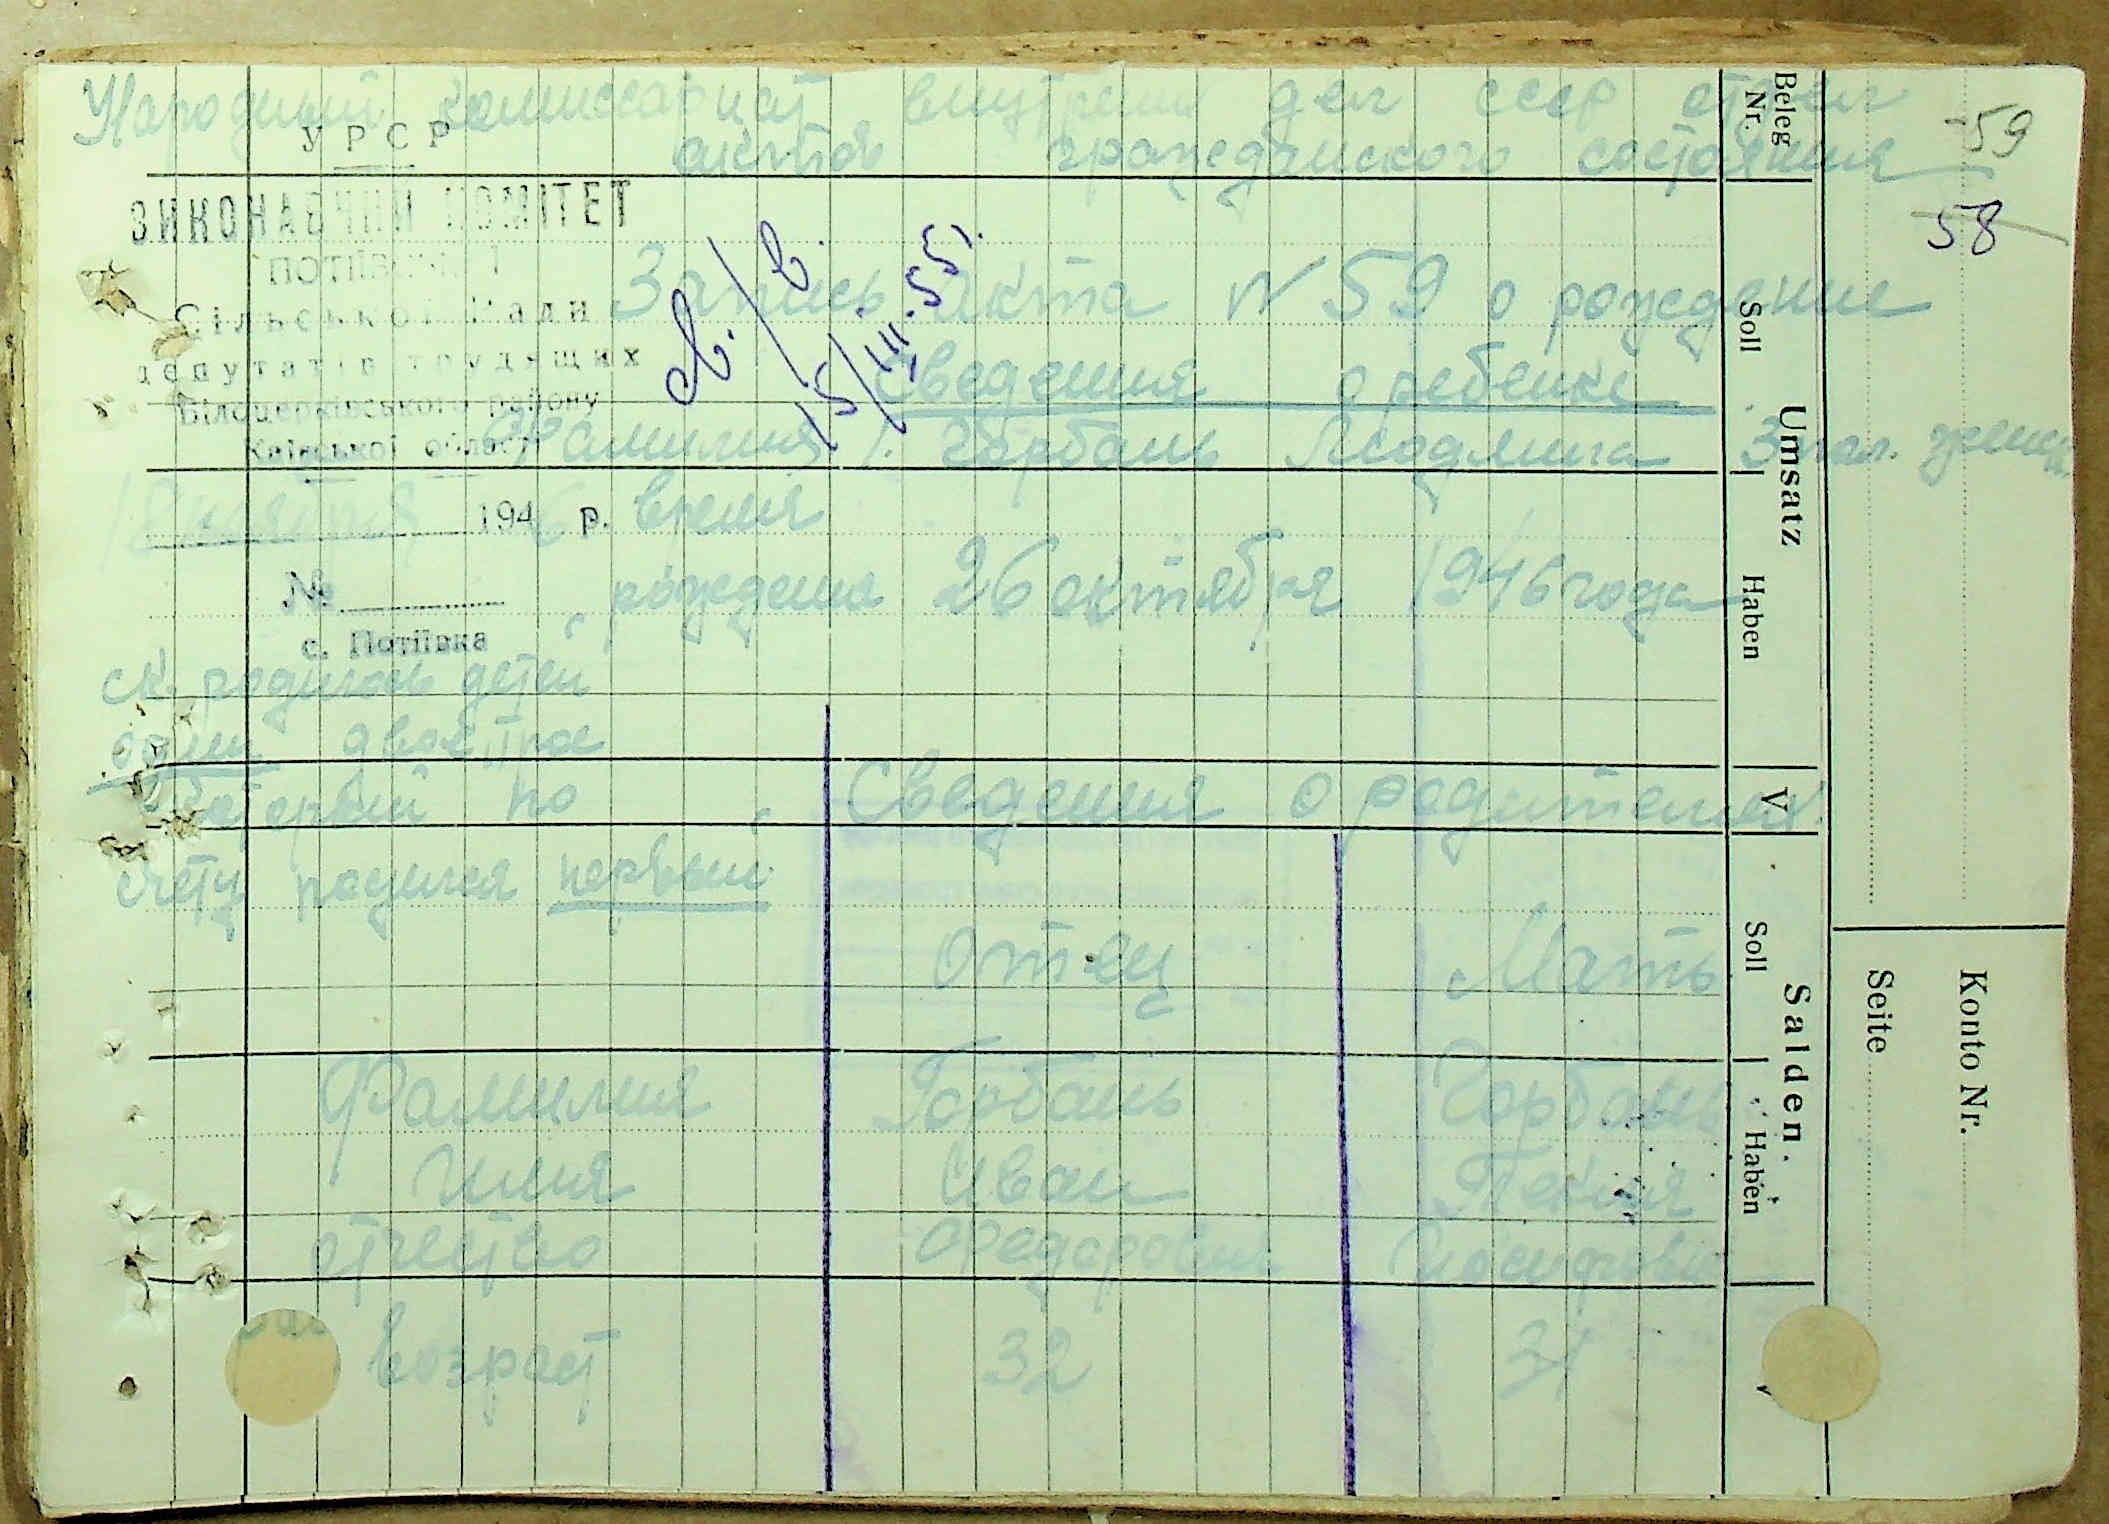 Народный комиссариат внутрених дел ссср отдел
актов гражданского состояния
УРСР
ВИКОНАВЧИЙ КОМІТЕТ
Потіївської
Сільської Ради
депутатів трудящих
Білоцерківського району
Київської області
18 ноября 1946 р.
№
с. Потіївка
59
58
15/III.55
Запись акта № 59 о рождение
Сведения о ребенке
Фамилия Горбань Людмила 3 пол. женщ
время
рождена 26 октября 1946 года
ск. родилось детей
один двое трое
который по
счету родился первый
Сведения о родителях
Отец Мать
Фамилия Горбань Горбань
Имя Иван Текля
отчество Федорович
возраст 32 31
Beleg Nr.
Soll Umsatz Haben
V
Soll Salden. Haben
Seite
Konto Nr.